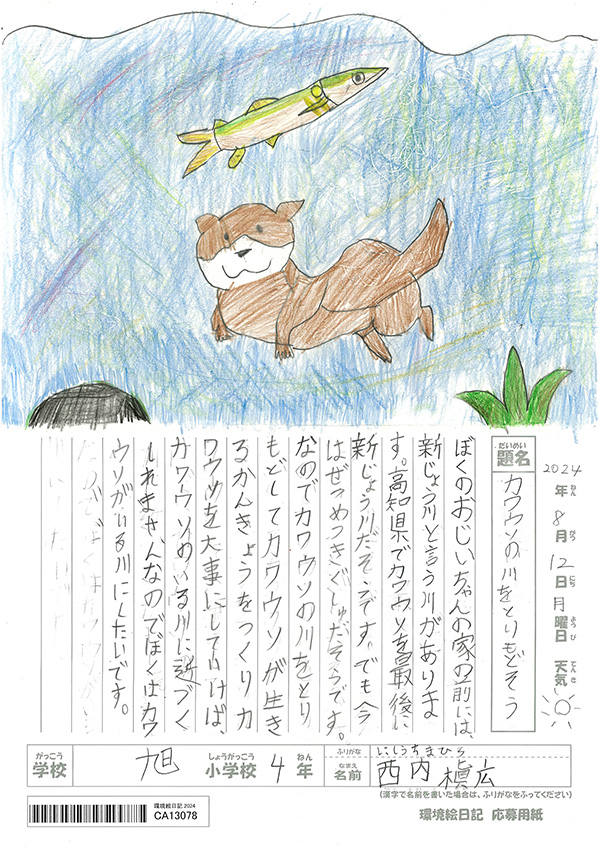 2024年ねん 8月がつ 12日にち 月曜日ようび 天気てんき
題名だいめい カワウソの川をとりもどそう
ぼくのおじいちゃんの家の前には、
新じょう川と言う川がありま
す。高知県でカワウソを最後に
新じょう川だそうです。でも今
はぜつめつきぐしゅだそうです。
なのでカワウソの川をとり
もどしてカワウソが生き
るかんきょうをつくりカ
ワウソを大事にしていけば、
カワウソのいる川に近づく
しれません。なのでぼくはカワ
ウソがいる川にしたいです。
学校がっこう 旭 小学校しょうがっこう 4年ねん
ふりがな にしうちまひろ
名前なまえ 西内 槙広
(漢字で名前を書いた場合は、ふりがなをふってください)
環境絵日記2024
CA13078
環境絵日記 応募用紙